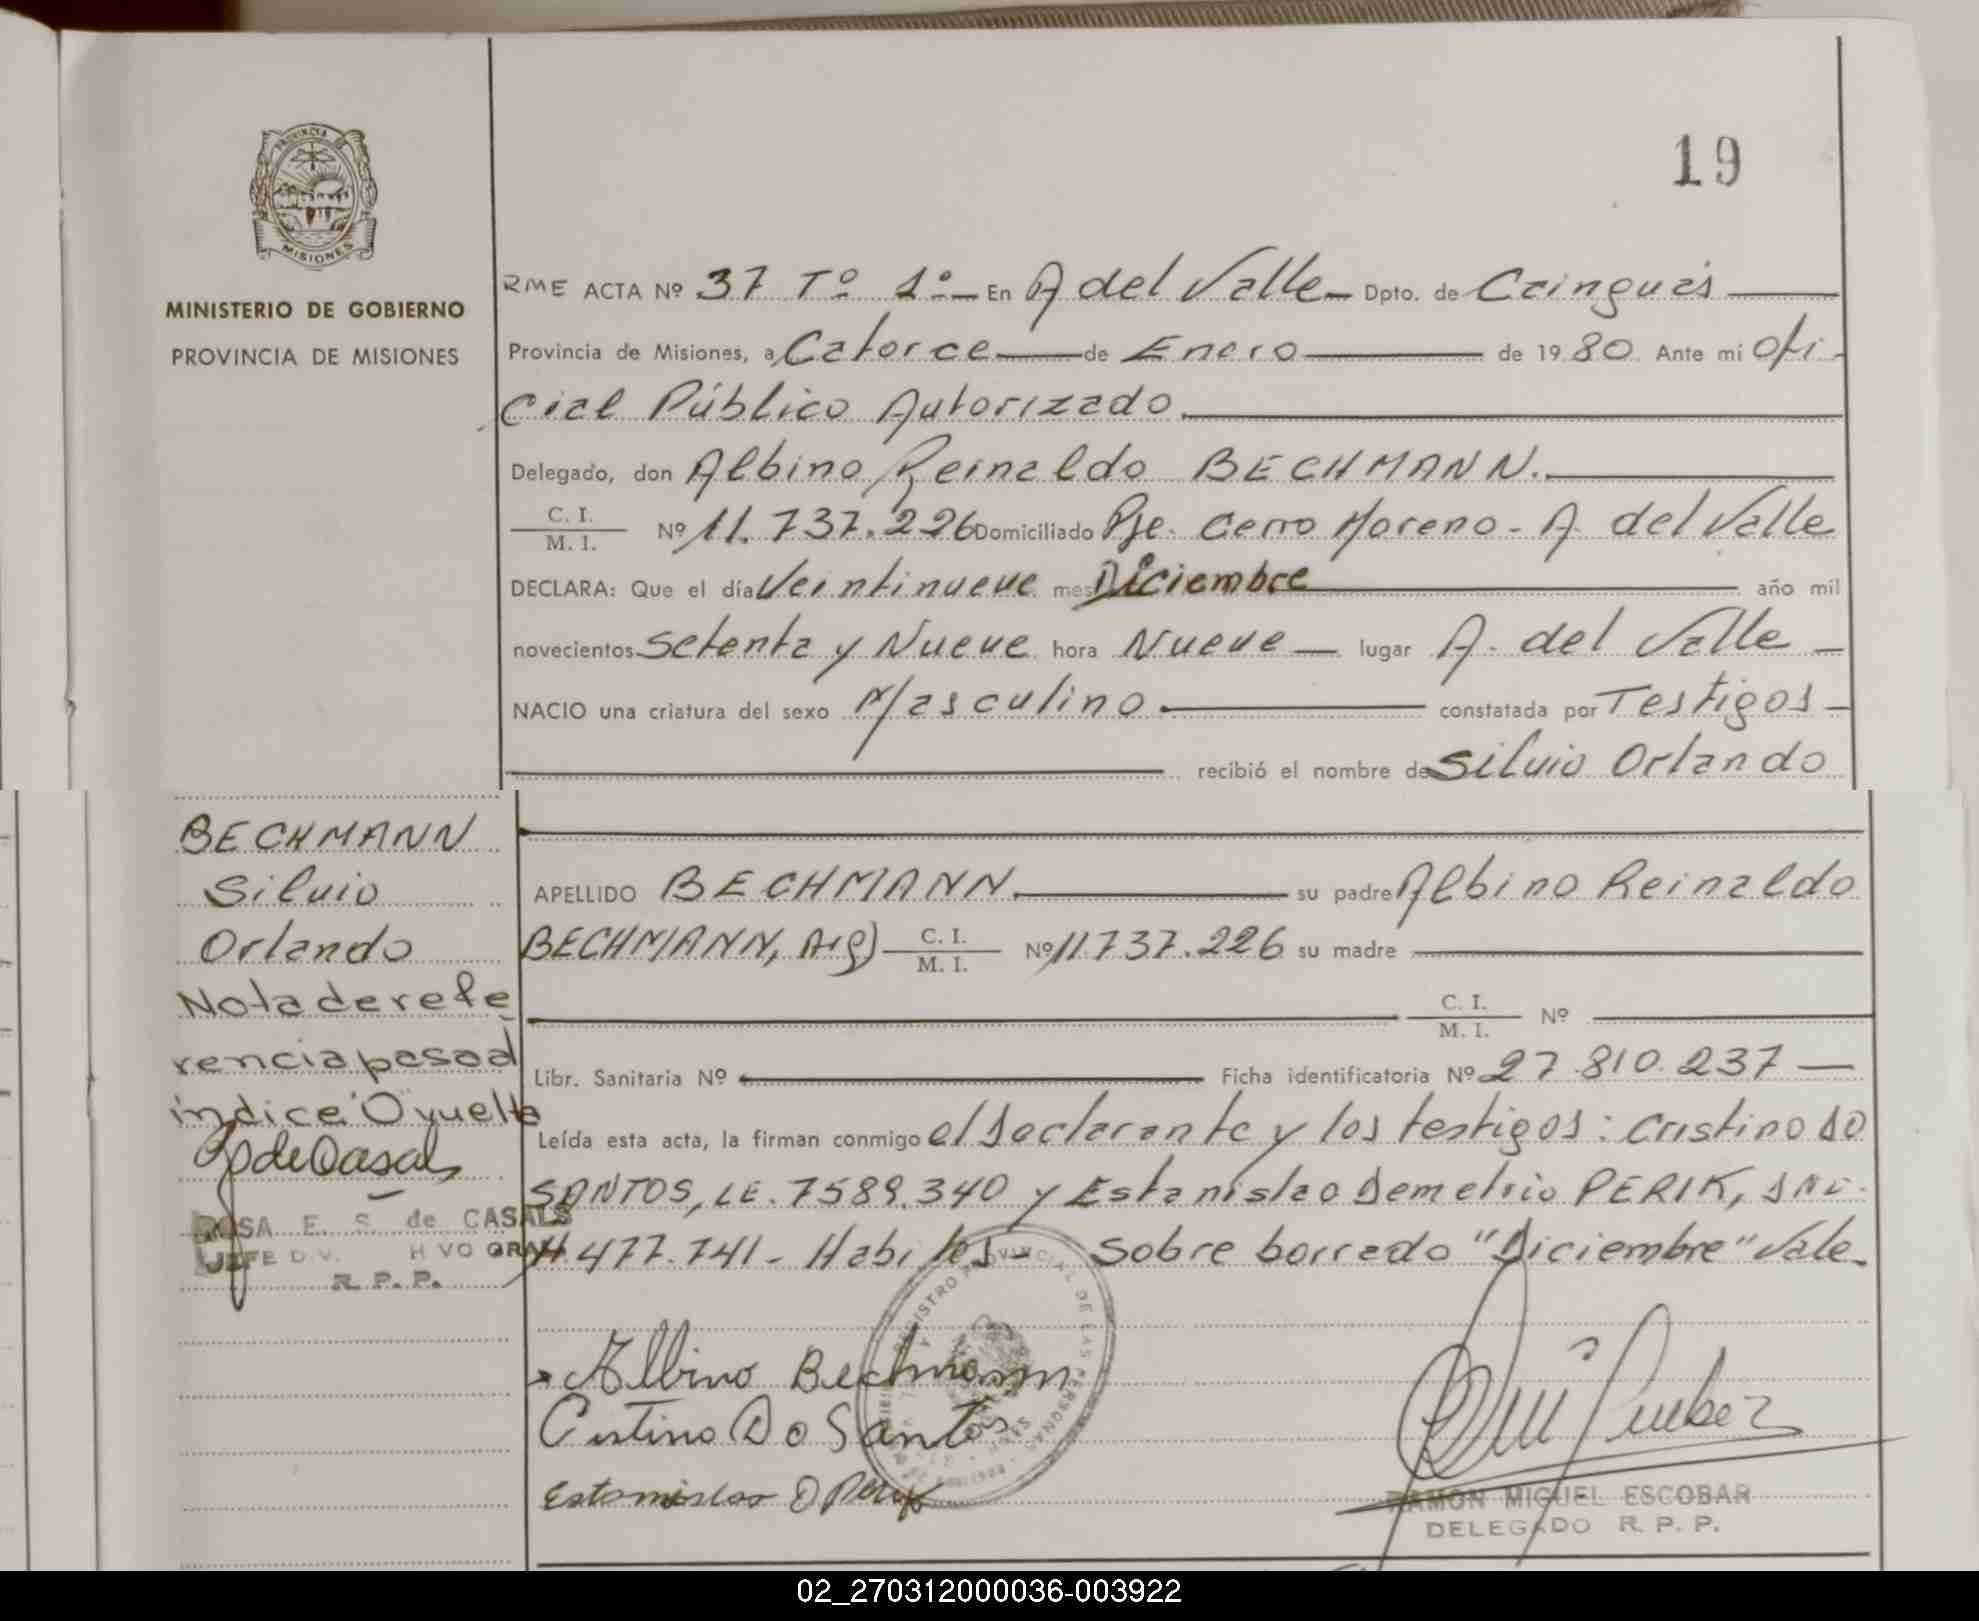 19
PROVINCIA DE
MISIONES
MINISTERIO DE GOBIERNO
PROVINCIA DE MISIONES
RME ACTA Nº 37 Tº 1º En A del Valle Dpto. de Cainguás
Provincia de Misiones, a Catorce de Enero de 1980. Ante mi Ofi-
cial Público Autorizado.
Delegado, don Albino Reinaldo BECHMANN.
C. I.
M. I. Nº 11.737.226 Domiciliado Pje. Cerro Moreno - A. del Valle
DECLARA: Que el día Veintinueve mes Diciembre año mil
novecientos Setenta y Nueve hora Nueve lugar A. del Valle
NACIO una criatura del sexo Masculino constatada por Testigos
recibió el nombre de Silvio Orlando
BECHMANN
Silvio
Orlando
Nota de refe
rencia pasad
indice "O" vuelta
R de Casals
ROSA E. S. de CASALS
JEFE DIV. H VO GRAL
R. P. P.
APELLIDO BECHMANN. su padre Albino Reinaldo
BECHMANN, Arg) C. I.
M. I. Nº 11.737.226 su madre
C. I.
M. I. Nº
Libr. Sanitaria Nº Ficha identificatoria Nº 27.810.237
Leída esta acta, la firman conmigo el Declarante y los testigos: Cristino DO
SANTOS, LE. 7589.340 y Estanislao Demetrio PERIK, DNI.
11.477.741 - Habiles - Sobre borrado "Diciembre" Vale
Albino Bechmann
Cristino Do Santos
Estanislao D Perik
REGISTRO PROVINCIAL DE LAS PERSONAS
RAMON MIGUEL ESCOBAR
DELEGADO R. P. P.
02_270312000036-003922